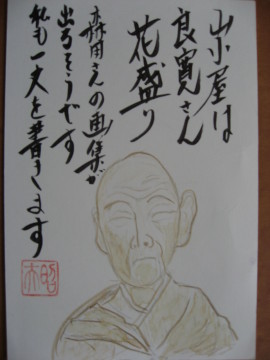 山小屋は
良寛さん
花盛り
森田さんの画集が
出るそうです
私も一文を書きます